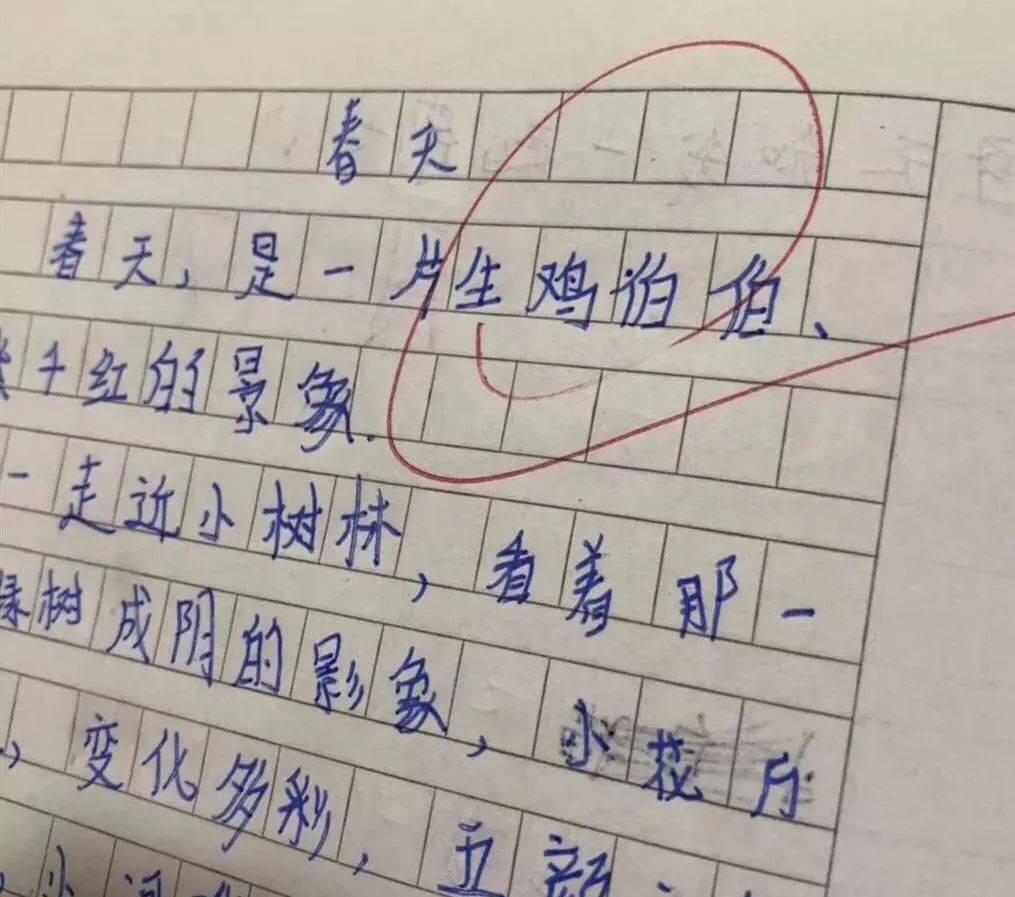 春天
春天，是一片生鸡伯伯、
千红的景象.
一走近小树林，看着那一
树成阴的影象，小花
，变化多彩，五颜